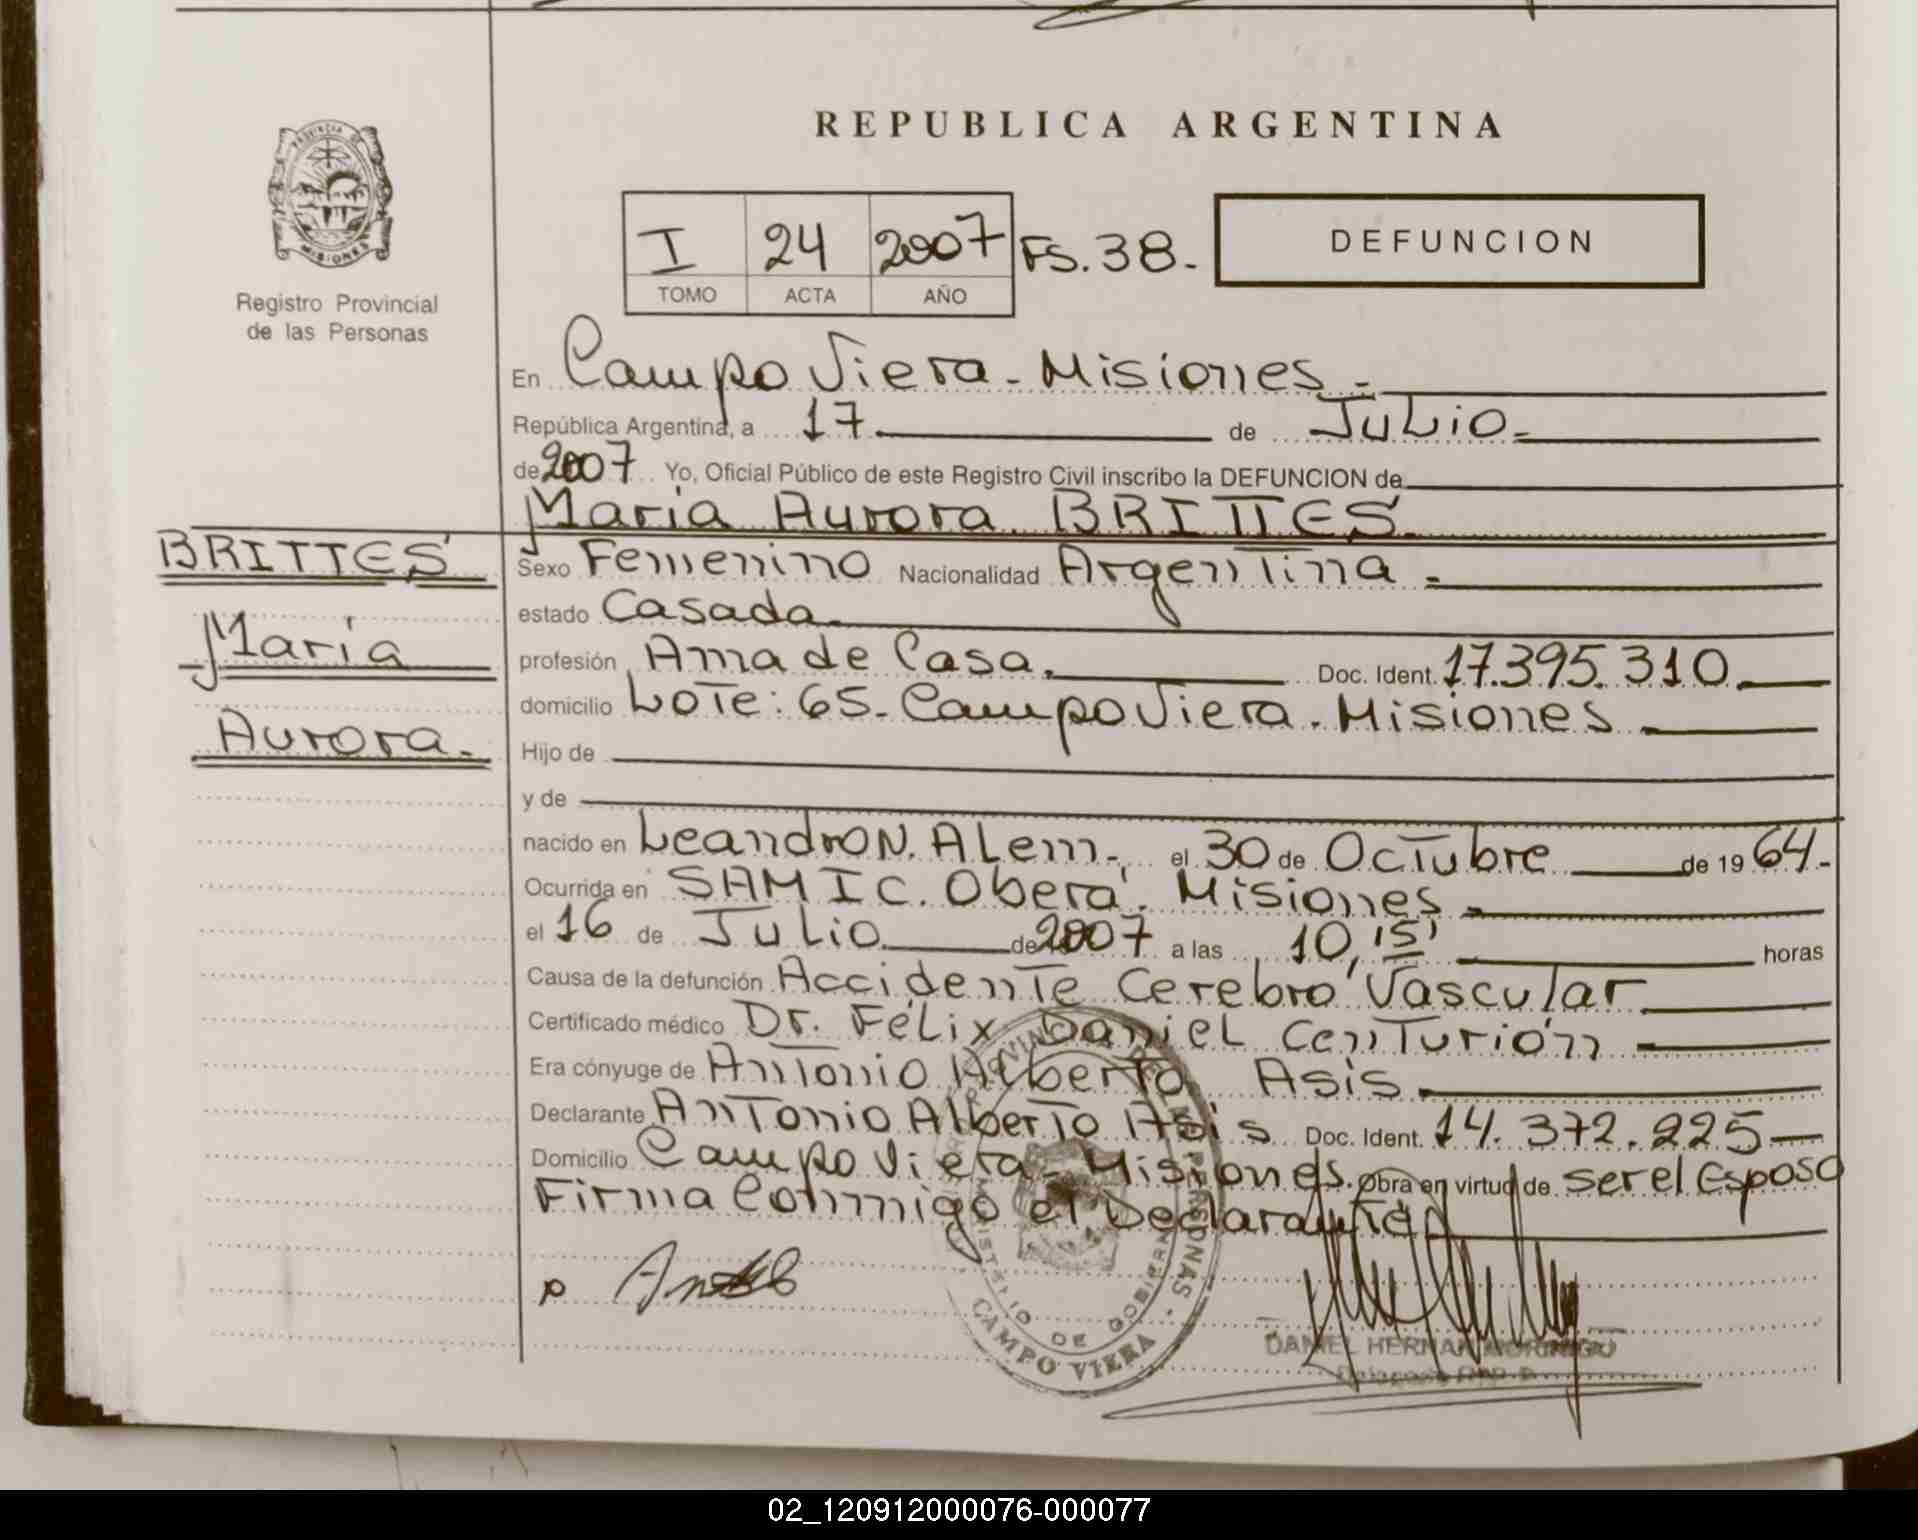 REPUBLICA ARGENTINA
PROVINCIA DE MISIONES
Registro Provincial
de las Personas
I 24 2007 FS. 38.-
TOMO ACTA AÑO
DEFUNCION
En Campo Viera - Misiones.-
República Argentina, a 17 de Julio.-
de 2007 Yo, Oficial Público de este Registro Civil inscribo la DEFUNCION de
María Aurora BRITTES.
BRITTES
María
Aurora.-
Sexo Femenino Nacionalidad Argentina.-
estado Casada.
profesión Ama de Casa. Doc. Ident. 17.395.310.
domicilio Lote: 65. Campo Viera. Misiones
Hijo de
y de
nacido en Leandro N. Alem.- el 30 de Octubre de 19 64.-
Ocurrida en SAMIC. Oberá. Misiones.
el 16 de Julio de 2007 a las 10,15' horas
Causa de la defunción Accidente Cerebro Vascular
Certificado médico Dr. Félix Daniel Centurión
Era cónyuge de Antonio Alberto Asis.
Declarante Antonio Alberto Asis Doc. Ident. 14.372.225
Domicilio Campo Viera - Misiones. Obra en virtud de ser el Esposo
Firma Conmigo el Declarante.
MINISTERIO DE GOBIERNO
CAMPO VIERA
DANIEL HERNAN